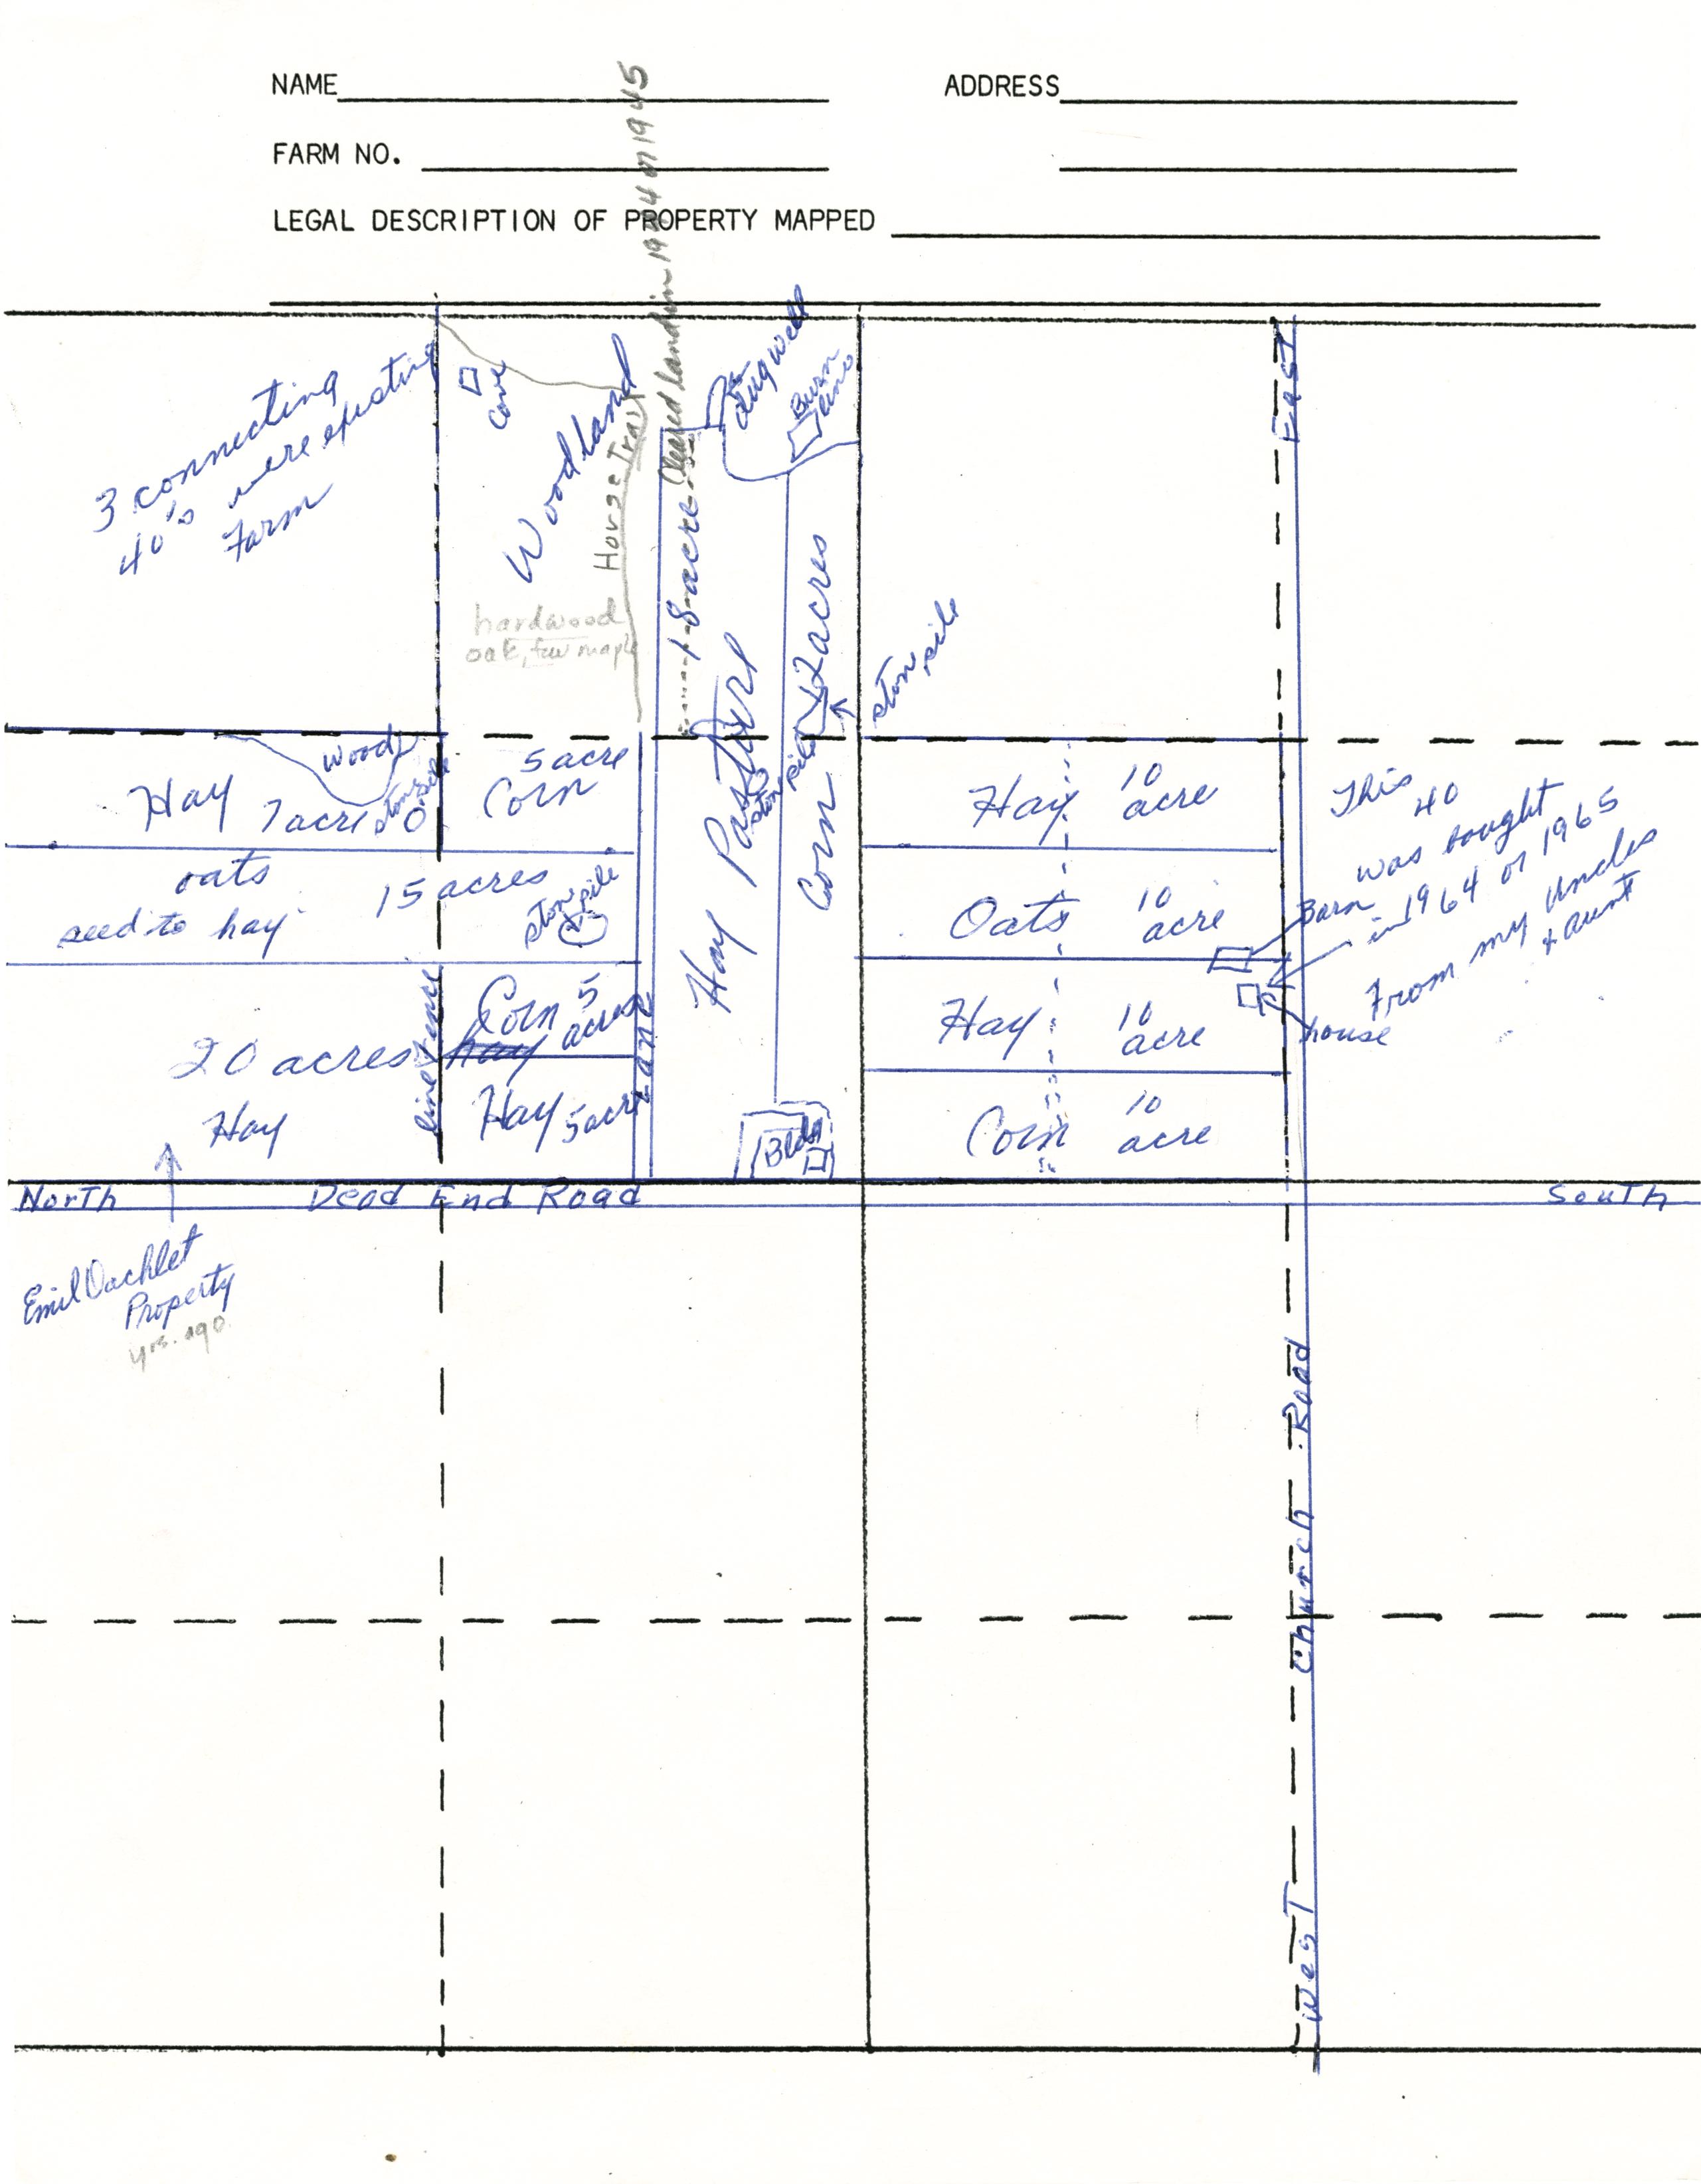 NAME
ADDRESS
FARM NO.
LEGAL DESCRIPTION OF PROPERTY MAPPED
Cleared land in 1944 or 1945
3 connecting
40's were existing
Farm
Cave
Woodland
House Trail
hardwood
oak, few maple
dug well
Burn
8 acre
Hay Pasture
stone pile
Corn 12 acres
stone pile
East
Hay 7 acre
Wood
stone pile
5 acre
Corn
oats 15 acres
seed to hay
stone pile
20 acres
Hay
line fence
Corn 5
acres
hay
Hay 5 acre
Lane
Bldg
Hay 10
acre
Oats 10
acre
Hay 10
acre
Corn 10
acre
This
40
was bought
in 1964 or 1965
From my Uncles
+ aunt
Barn
house
North
Dead End Road
South
Emil
Property
yrs. ago
Church Road
West